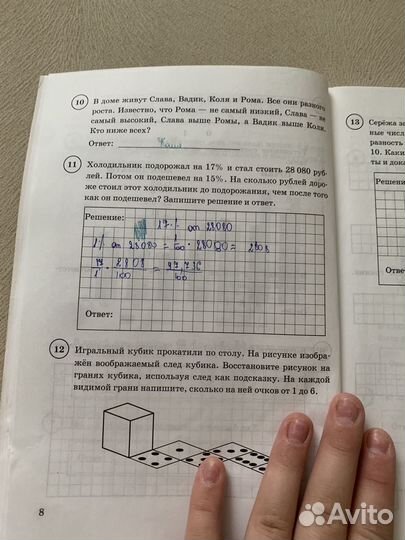 10 В доме живут Слава, Вадик, Коля и Рома. Все они разного
роста. Известно, что Рома — не самый низкий, Слава — не
самый высокий, Слава выше Ромы, а Вадик выше Коли.
Кто ниже всех?
Ответ: Коля
11 Холодильник подорожал на 17% и стал стоить 28 080 руб-
лей. Потом он подешевел на 15%. На сколько рублей доро-
же стоил этот холодильник до подорожания, чем после того
как он подешевел? Запишите решение и ответ.
Решение:
17% от 28080
1% от 28080 = 1/100 · 28080 = 280 8
17/1 · 2808/100 = 47,736/100
Ответ:
12 Игральный кубик прокатили по столу. На рисунке изобра-
жён воображаемый след кубика. Восстановите рисунок на
гранях кубика, используя след как подсказку. На каждой
видимой грани напишите, сколько на ней очков от 1 до 6.
8
13 Серёжа за
ные числ
разность
10. Каки
ты и дока
Решени
Ответ
Avito